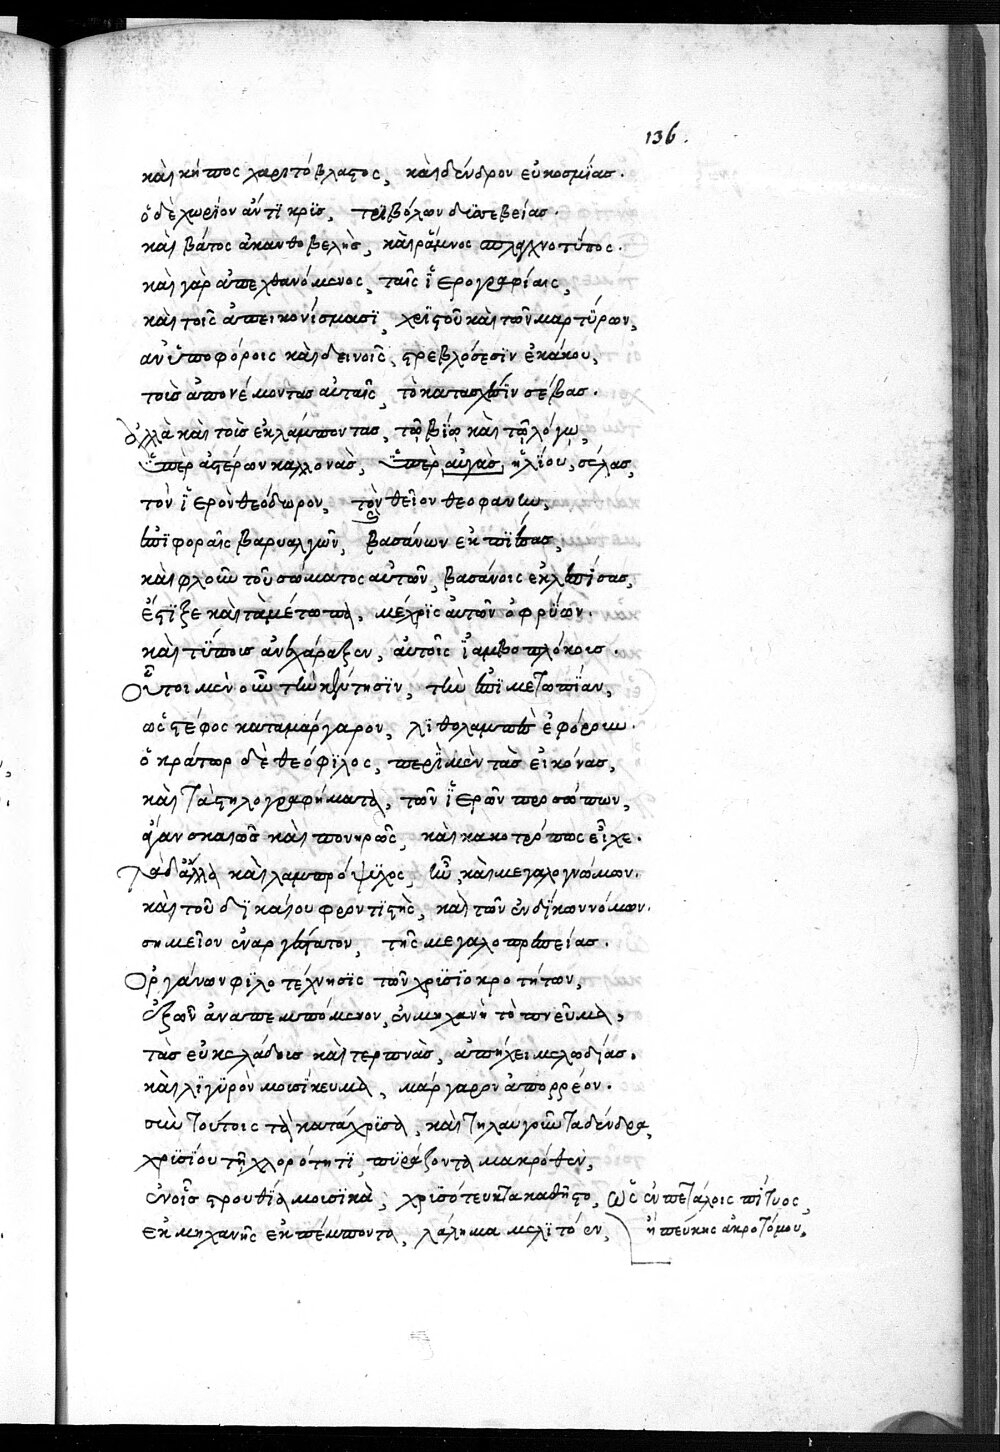 136.
καὶ κῆπος χαριτόβλαστος, καὶ δένδρον εὐκοσμίας.
ὁ δὲ χωρίον ἄντικρϊς, τριβόλων δυϊσεβείας.
καὶ βάτος ἀκανθοβελὴς, καὶ ῥάμνος
καὶ γὰρ ἀπεχθανόμενος, ταῖς ἱερογραφίαις,
καὶ τοῖς ἀπεικονίσμασϊ, χϊστοῦ καὶ τῶν μαρτύρων,
ἀνϋποφόροις καὶ δειναῖς, στρεβλώσεσϊν ἐκάκου,
τοὺς ἀπονέμοντας αὐταῖς, τὸ κατασχεῖν σέβας.
ἀλλὰ καὶ τοὺς ἐκλάμποντας, τῷ βίῳ καὶ τῷ λόγῳ,
ὑπὲρ ἀστέρων καλλονὰς, ὑπὲρ αὐγὰς ἡλίου, σέλας,
τὸν ἱερὸν θεόδωρον, τὸν θεῖον θεοφάνην,
ἐπϊφοραῖς βαρυαλγῶν, βασάνων ἐκπϊέσας,
καὶ φλοιὸν τοῦ σώματος αὐτῶν, βασάνοις ἐκλεπΐσας,
ἔστϊξε καὶ τὰ μέτωπα, μέχρϊς αὐτῶν ὀφρύων.
καὶ τύποις ἐνεχάραξεν, αὐτοῖς ἰαμβοπλόκοις.
Οὗτοι μὲν οὖν τὴν κέντησϊν, τὴν ἐπϊμετωπΐαν,
ὡς στέφος καταμάργαρον, λϊθολαμπὲς ἐφόρουν.
ὁ κράτωρ δὲ θεόφϊλος, περὶ μὲν τὰς εἰκόνας,
καὶ τὰ στηλογραφήματα, τῶν ἱερῶν προσώπων,
ἄγαν σκαιῶς καὶ πονηρῶς, καὶ κακοτρόπως εἶχε.
Τὰ δ᾽ ἄλλα καὶ λαμπρόψϋχος, ἦν, καὶ μεγαλογνώμων.
καὶ τοῦ δϊκαίου φροντϊστὴς, καὶ τῶν ἐνδΐκων νόμων.
σημεῖον ἐναργέστατον, τῆς μεγαλοπρεπείας.
Ὀργάνων φϊλοτέχνησϊς τῶν χρϋσϊοκροτήτων,
ἐξ ὧν ἀναπεμπόμενον, ἐν μηχανῇ τὸ πνεῦμα,
τὰς εὐκελάδους καὶ τερπνὰς, ἀπήχει μελῳδίας.
καὶ λϊγϋρὸν μουσΐκευμα, μάργαρον ἀπορρέον.
σὺν τούτοις τὰ κατάχρϋσα, καὶ τηλαυγοῦντα δένδρα,
χρϋσίου τῇ χλορότητϊ, πϋράζοντα μακρόθεν,
ἐν οἷς στρουθΐα μουσϊκὰ, χρϋσότευκτα καθῆστο, ὡς ἐν πετάλοις πίτυος,
ἐκ μηχανῆς ἐκπέμποντα, λάλημα μελϊτόεν, ἢ πεύκης ἀκροτόμου.